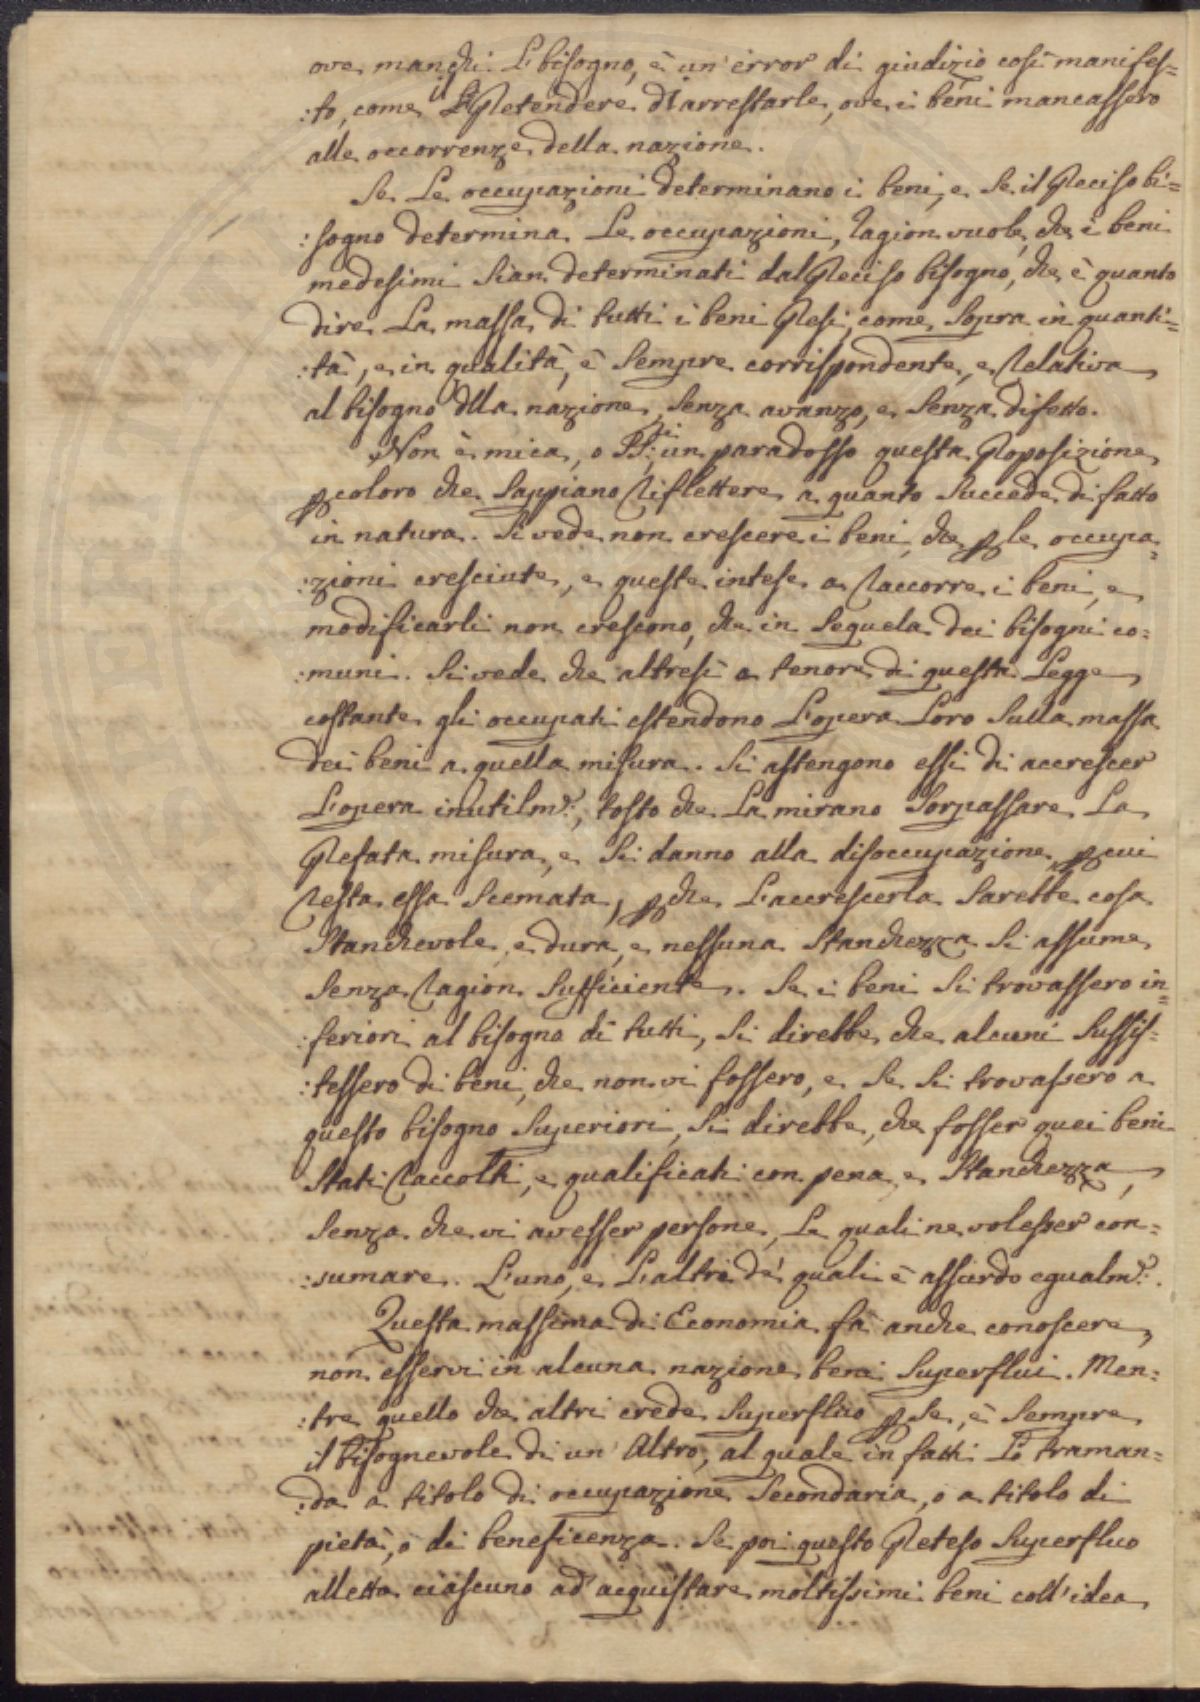 ove manchi il bisogno, è un' error di giudizio così manifes=
:to, come il pretendere d'arrestarle, ove i beni mancassero
alle occorrenze della nazione.
Se le occupazioni determinano i beni, e se il preciso bi=
:sogno determina le occupazioni, ragion vuole, che i beni
medesimi sian determinati dal preciso bisogno, che è quanto
dire la massa di tutti i beni presi, come sopra in quanti=
:tà, e in qualità, è sempre corrispondente, e relativa
al bisogno dlla nazione, senza avanzo, e senza difetto.
Non è mica, o PP:ni un paradosso questa proposizione
p coloro che sappiano riflettere a quanto succede di fatto
in natura. Si vede non crescere i beni, che p le occupa=
:zioni cresciute, e queste intese a raccorre i beni, e
modificarli non crescono, che in sequela dei bisogni co=
:muni. Si vede che altresì a tenore di questa legge
costante gli occupati estendono l'opera loro sulla massa
dei beni a quella misura. Si astengono essi di accrescer
l'opera inutilm.e, tosto che la mirano sorpassare la
prefata misura, e si danno alla disoccupazione, p cui
resta essa scemata, pche l'accrescerla sarebbe cosa
stanchevole, e dura, e nessuna stanchezza si assume
senza ragion sufficiente. Se i beni si trovassero in=
:feriori al bisogno di tutti, si direbbe, che alcuni sussis=
:tessero di beni, che non vi fossero, e se si trovassero a
questo bisogno superiori, si direbbe, che fosser quei beni
stati raccolti, e qualificati con pena, e stanchezza,
senza che vi avesser persone, le quali ne volesser con=
:sumare. L'uno, e l'altro de' quali è assurdo egualm.e:.
Questa massima di Economia fà anche conoscere,
non esservi in alcuna nazione beni superflui. Men=
:tre quello che altri crede superfluo p se, è sempre
il bisognevole di un' Altro, al quale in fatti lo traman=
:da a titolo di occupazione secondaria, o a titolo di
pietà, o di beneficenza. Se poi questo preteso superfluo
alletta ciascuno ad acquistare moltissimi beni coll'idea